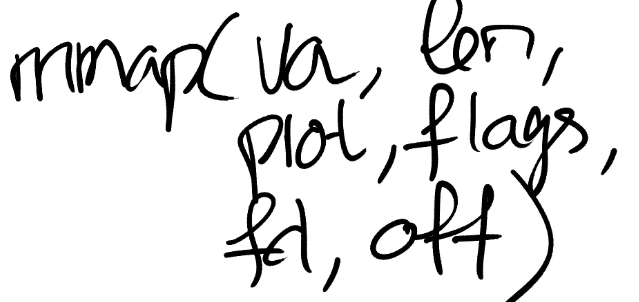 mmap(va, len,
prot, flags,
fd, off)